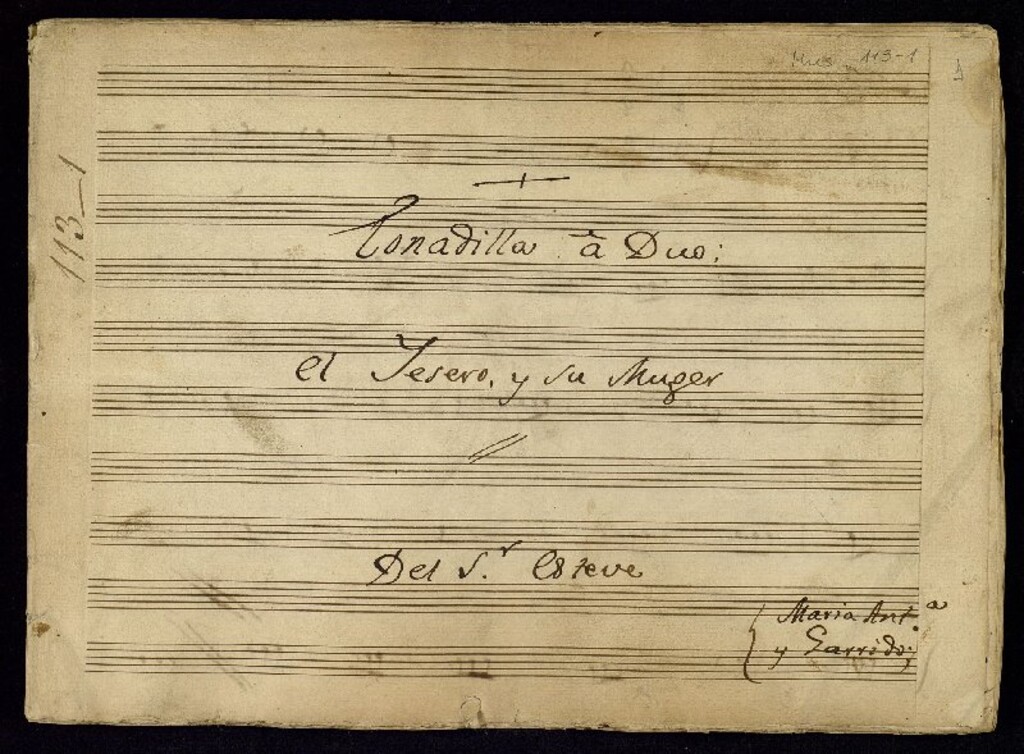 Mus 113-1
113-1
Tonadilla à Duo;
el Yesero, y su Muger
Del S.r Esteve
Maria Ant.a
y Garrido;